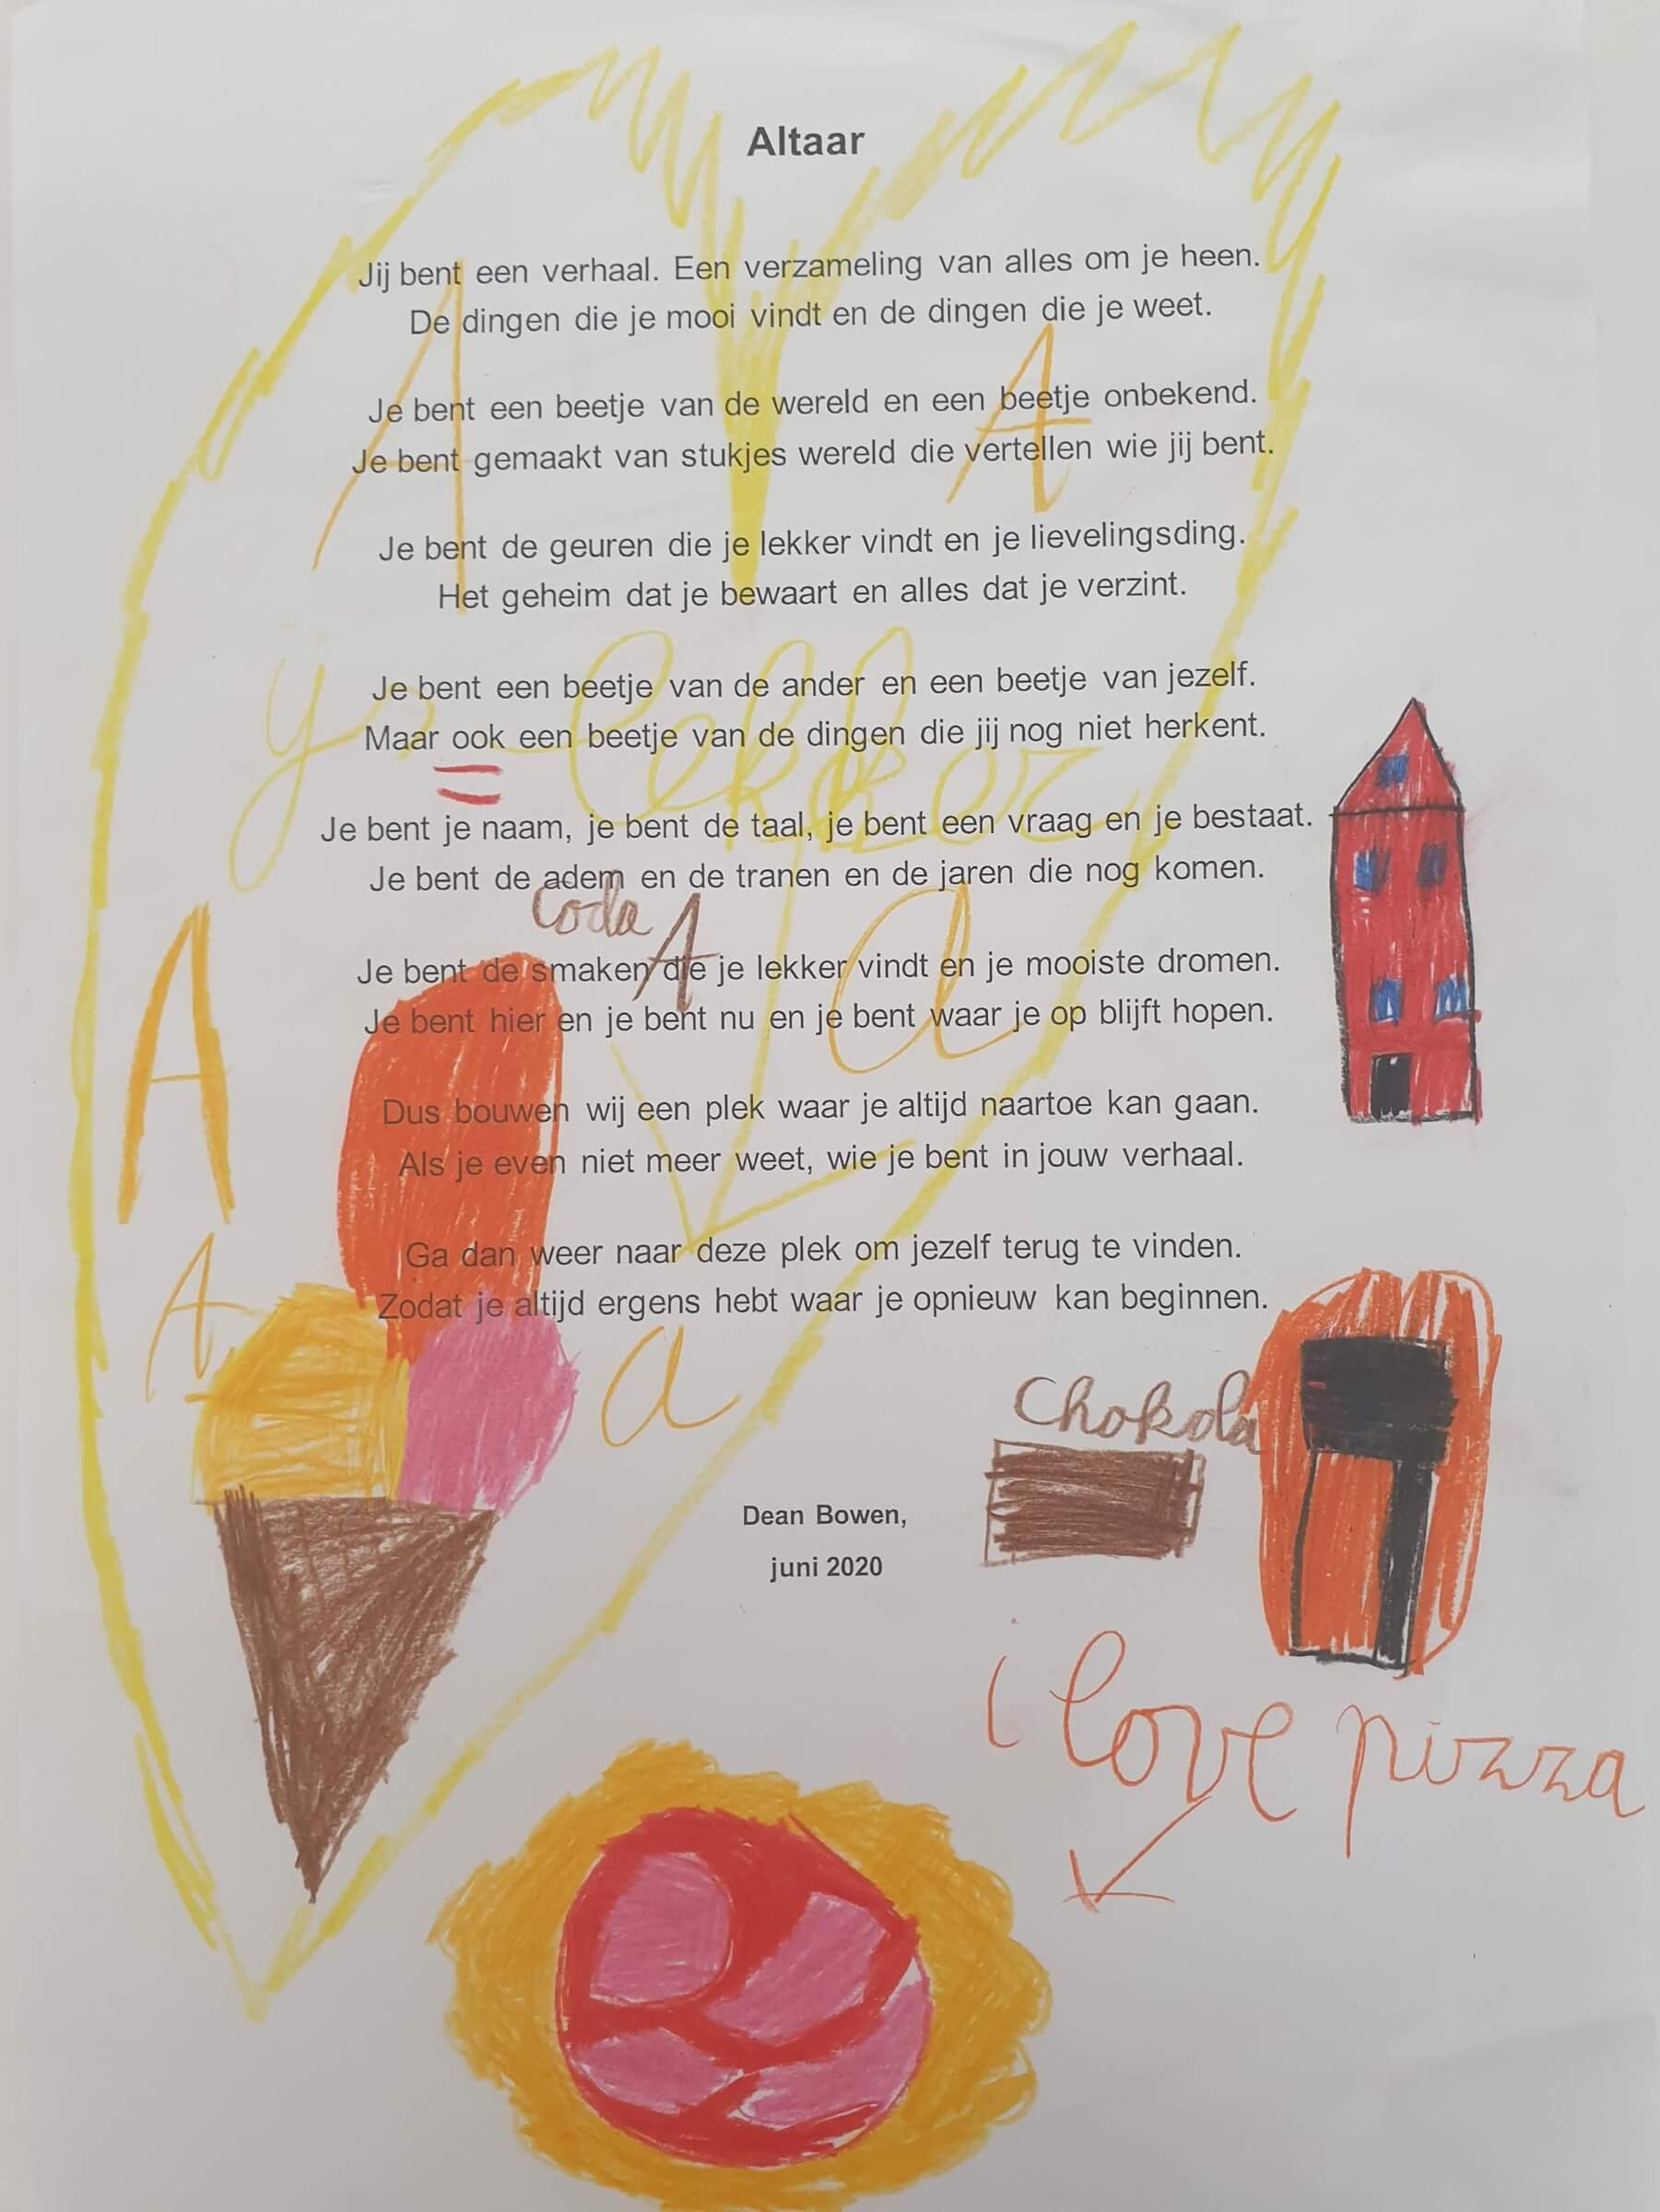 Altaar
Jij bent een verhaal. Een verzameling van alles om je heen.
De dingen die je mooi vindt en de dingen die je weet.
A
A
Je bent een beetje van de wereld en een beetje onbekend.
Je bent gemaakt van stukjes wereld die vertellen wie jij bent.
Je bent de geuren die je lekker vindt en je lievelingsding.
Het geheim dat je bewaart en alles dat je verzint.
Je bent een beetje van de ander en een beetje van jezelf.
Maar ook een beetje van de dingen die jij nog niet herkent.
Je bent je naam, je bent de taal, je bent een vraag en je bestaat.
Je bent de adem en de tranen en de jaren die nog komen.
A
A
a
Je bent de smaken die je lekker vindt en je mooiste dromen.
Je bent hier en je bent nu en je bent waar je op blijft hopen.
Dus bouwen wij een plek waar je altijd naartoe kan gaan.
Als je even niet meer weet, wie je bent in jouw verhaal.
Ga dan weer naar deze plek om jezelf terug te vinden.
Zodat je altijd ergens hebt waar je opnieuw kan beginnen.
A
a
Chokola
Dean Bowen,
juni 2020
i love pizza